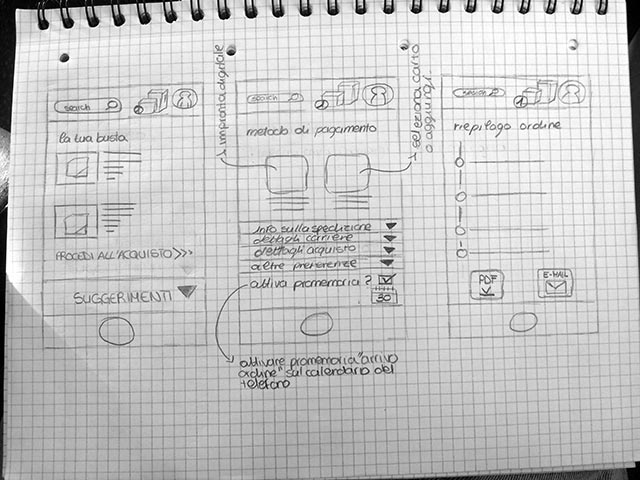 search
la tua busta
PROCEDI ALL'ACQUISTO >>>
SUGGERIMENTI
impronta digitale
search
metodo di pagamento
seleziona carta
o aggiungi.
info sulla spedizione
dettagli corriere
dettagli acquisto
altre preferenze
attiva promemoria?
30
attivare promemoria "arrivo
ordine" sul calendario del
telefono
search
riepilogo ordine
PDF
E-MAIL